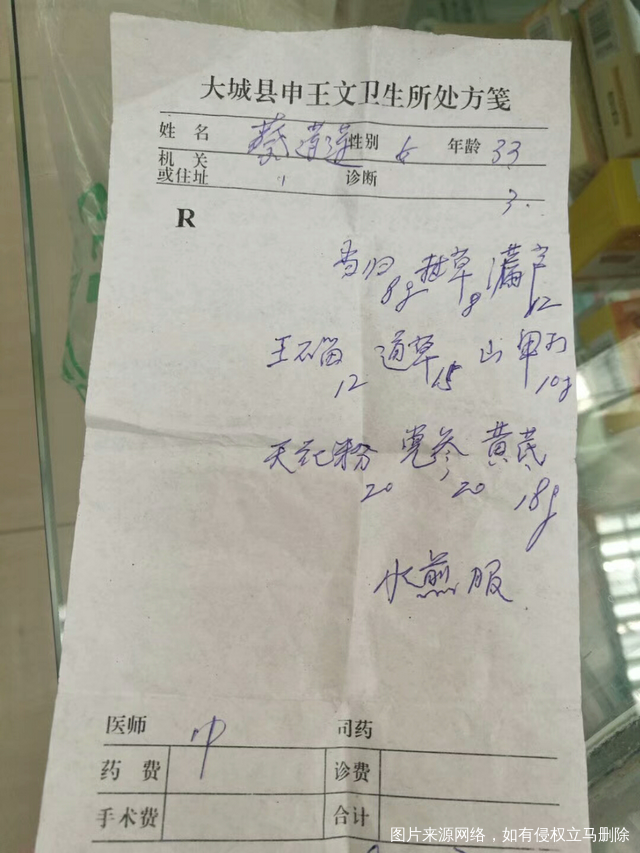 大城县申王文卫生所处方笺
姓名 蔡 性别 女 年龄 33
机关
或住址 诊断
3.
R
当归 甘草 漏芦
8g 8 12
王不留 通草 山甲珠
12 15 10g
天花粉 党参 黄芪
20 20 18g
水煎服
医师 司药
药费 诊费
手术费 合计
图片来源网络,如有侵权立马删除